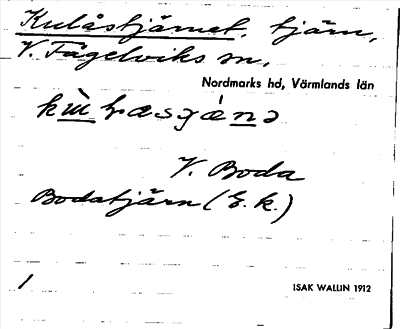 Kulåstjärnet, tjärn,
V. Fågelviks sn,
Nordmarks hd, Värmlands län
V. Boda
Bodatjärn (E. k.)
1
ISAK WALLIN 1912